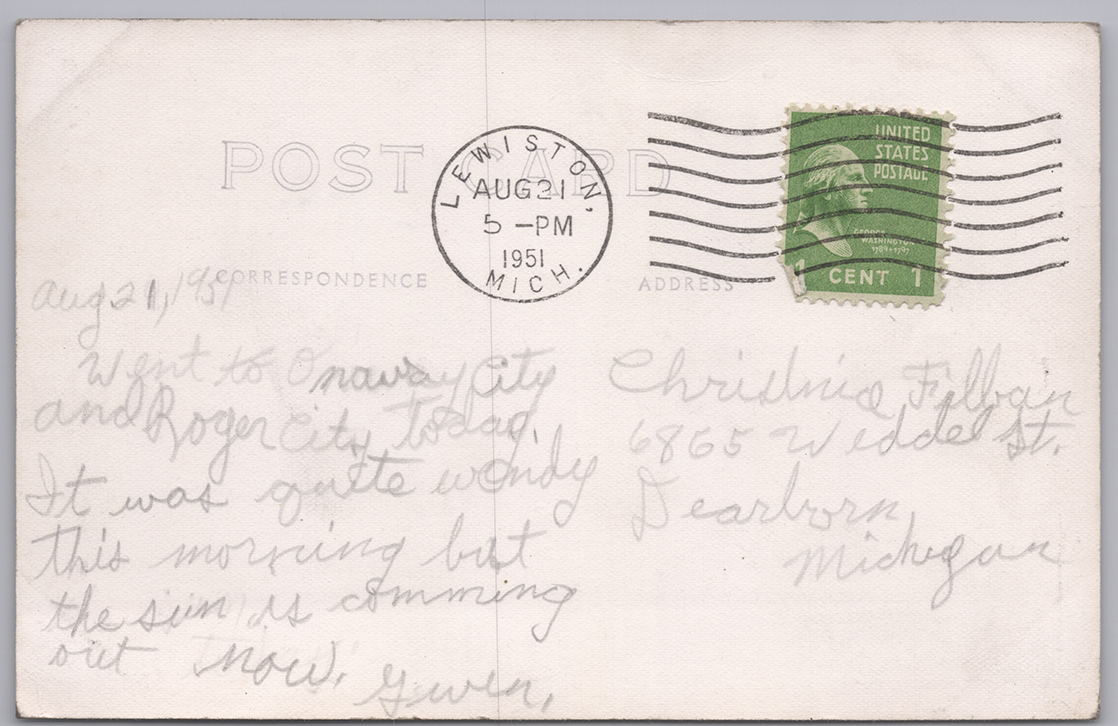 POST CARD
LEWISTON,
AUG 21
5 -PM
1951
MICH.
UNITED
STATES
POSTAGE
GEORGE
WASHINGTON
1789-1797
1 CENT 1
CORRESPONDENCE
ADDRESS
Aug 21, 1951
Went to Onaway City
and Roger City today.
It was quite windy
this morning but
the sun is comming
out now. Gwen.
Christina
6865 Weddel St.
Dearborn,
Michegan